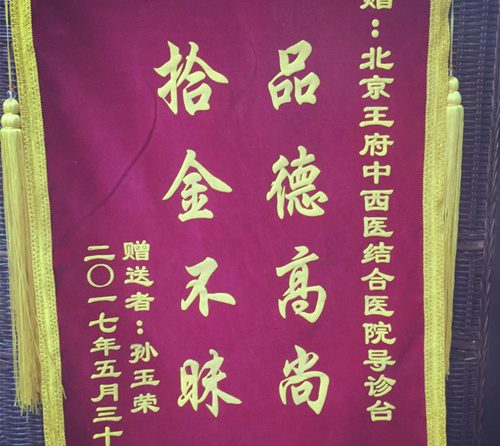 赠：北京王府中西医结合医院导诊台
品德高尚
拾金不昧
赠送者：孙玉荣
二〇一七年五月三十